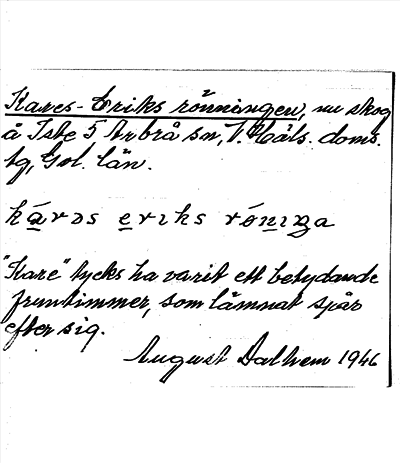 Kares-Eriks rönningen, nu skog
å Iste 5 Arbrå sn, V. Häls. doms.
tg, Gvl. län.
kārəs erıks rónıŋa
"Kare" tycks ha varit ett betydande
fruntimmer, som lämnat spår
efter sig.
August Dalhem 1946